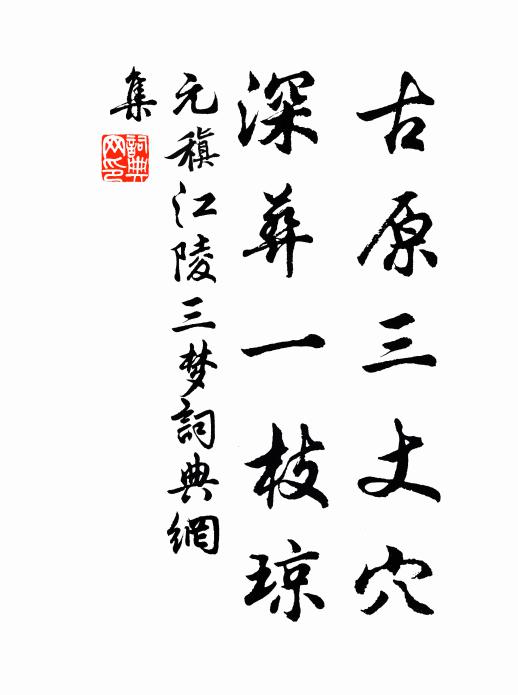 古原三丈穴
深葬一枝琼
元稹江陵三梦詞典網
集
詞典网印